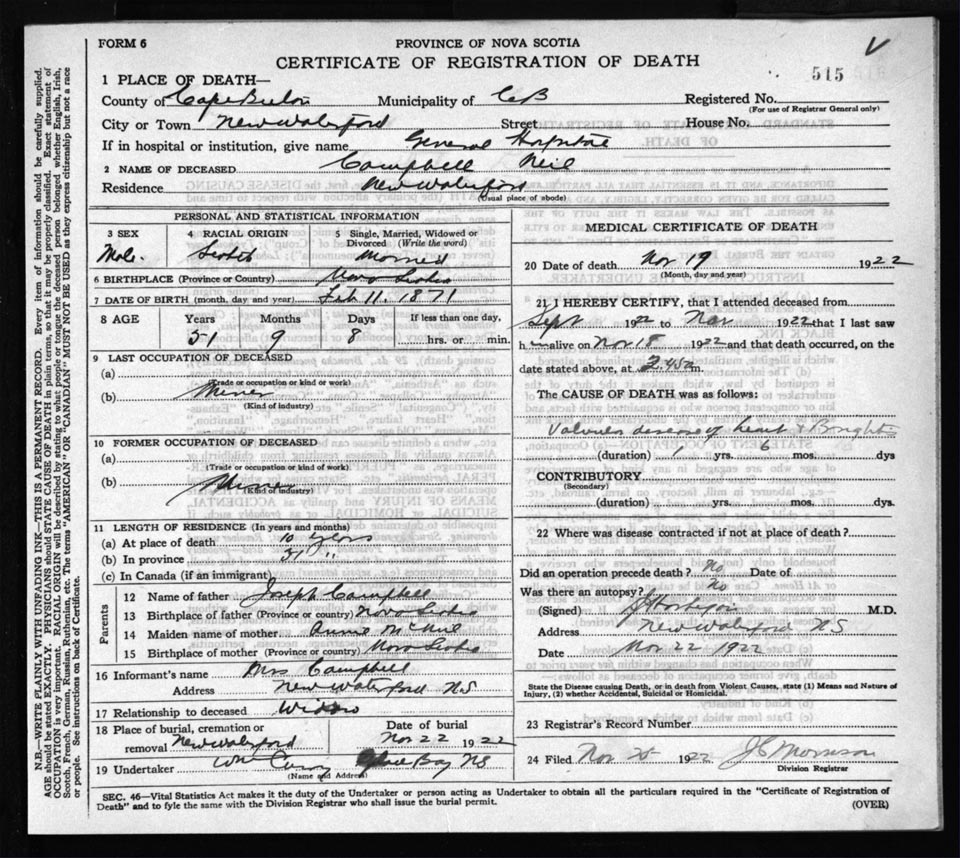 FORM 6
PROVINCE OF NOVA SCOTIA
CERTIFICATE OF REGISTRATION OF DEATH
515
1 PLACE OF DEATH—
County of Cape Breton Municipality of CB Registered No.
(For use of Registrar General only)
City or Town New Waterford Street House No.
If in hospital or institution, give name General Hospital
2 NAME OF DECEASED Campbell Neil
Residence New Waterford
(Usual place of abode)
PERSONAL AND STATISTICAL INFORMATION
3 SEX 4 RACIAL ORIGIN 5 Single, Married, Widowed or Divorced (Write the word)
Male Scotch Married
6 BIRTHPLACE (Province or Country) Nova Scotia
7 DATE OF BIRTH (month, day and year) Feb 11. 1871
8 AGE Years Months Days If less than one day,
51 9 8 hrs. or min.
9 LAST OCCUPATION OF DECEASED
(a)
(Trade or occupation or kind or work)
(b) Miner
(Kind of industry)
10 FORMER OCCUPATION OF DECEASED
(a)
(Trade or occupation or kind or work)
(b) Miner
(Kind of industry)
11 LENGTH OF RESIDENCE (In years and months)
(a) At place of death 10 years
(b) In province 51 "
(c) In Canada (if an immigrant)
Parents
12 Name of father Joseph Campbell
13 Birthplace of father (Province or country) Nova Scotia
14 Maiden name of mother Annie McNeil
15 Birthplace of mother (Province or country) Nova Scotia
16 Informant's name Mrs Campbell
Address New Waterford NS
17 Relationship to deceased Widow
18 Place of burial, cremation or removal New Waterford Date of burial Nov 22 1922
19 Undertaker Wm Curry Glace Bay NS
(Name and Address)
MEDICAL CERTIFICATE OF DEATH
20 Date of death Nov 19 1922
(Month, day and year)
21 I HEREBY CERTIFY, that I attended deceased from
Sept 1922 to Nov 1922 that I last saw
h im alive on Nov 18 1922 and that death occurred, on
date stated above, at 2.45 a m.
The CAUSE OF DEATH was as follows:
Valvular disease of heart & Brights
(duration) 1 yrs. 6 mos. dys
CONTRIBUTORY
(Secondary)
(duration) yrs. mos. dys.
22 Where was disease contracted if not at place of death?
Did an operation precede death? No Date of
Was there an autopsy? No
(Signed) M.D.
Address New Waterford NS
Date Nov 22 1922
State the Disease causing Death, or in death from Violent Causes, state (1) Means and Nature of Injury, (2) whether Accidental, Suicidal or Homicidal.
23 Registrar's Record Number
24 Filed Nov 25 1922 Morrison
Division Registrar
SEC. 46—Vital Statistics Act makes it the duty of the Undertaker or person acting as Undertaker to obtain all the particulars required in the "Certificate of Registration of
Death" and to fyle the same with the Division Registrar who shall issue the burial permit.
(OVER)
N.B.—WRITE PLAINLY WITH UNFADING INK—THIS IS A PERMANENT RECORD. Every item of information should be carefully supplied.
AGE should be stated EXACTLY. PHYSICIANS should STATE CAUSE OF DEATH in plain terms, so that it may be properly classified. Exact statement of
OCCUPATION is very important. RACIAL ORIGIN will be described by stating to what people or tongue the deceased person belonged, whether English, Irish,
Scotch, French, German, Russian, Ruthenian, etc. The terms "AMERICAN" OR "CANADIAN" MUST NOT BE USED as they express citizenship but not a race
or people. See instructions on back of Certificate.